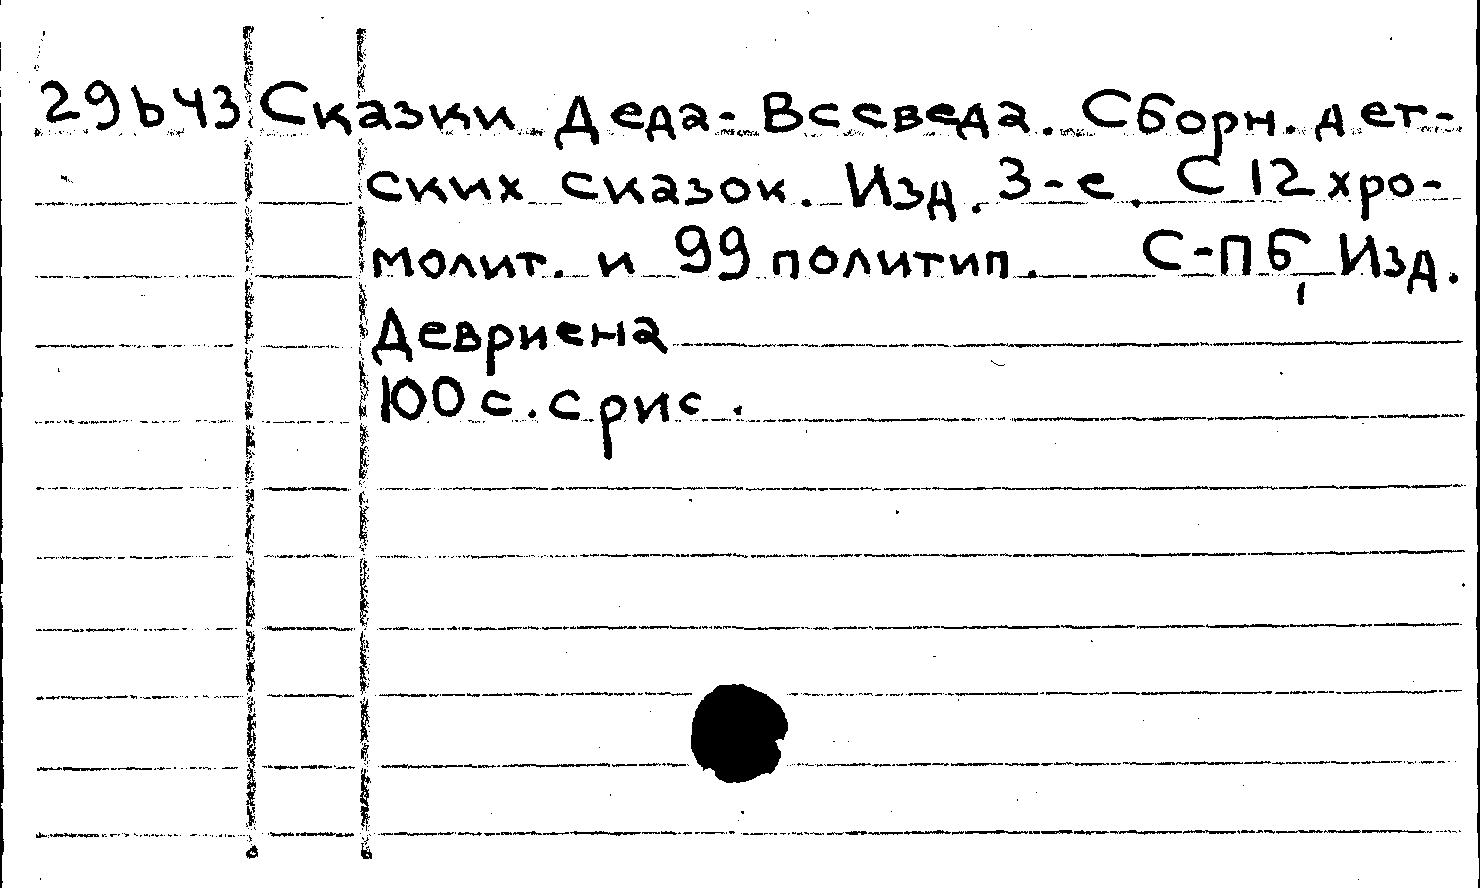 29b43 Сказки Деда-Всеведа. Сборн. дет-
ских сказок. Изд. 3-е. С 12 хро-
молит. и 99 политип. С-Пб, Изд.
Девриена
100 с. с рис.